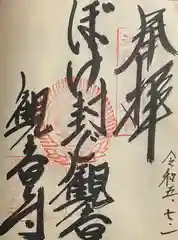 奉拝
令和五・七・一
ぼけ封じ観音
観音寺